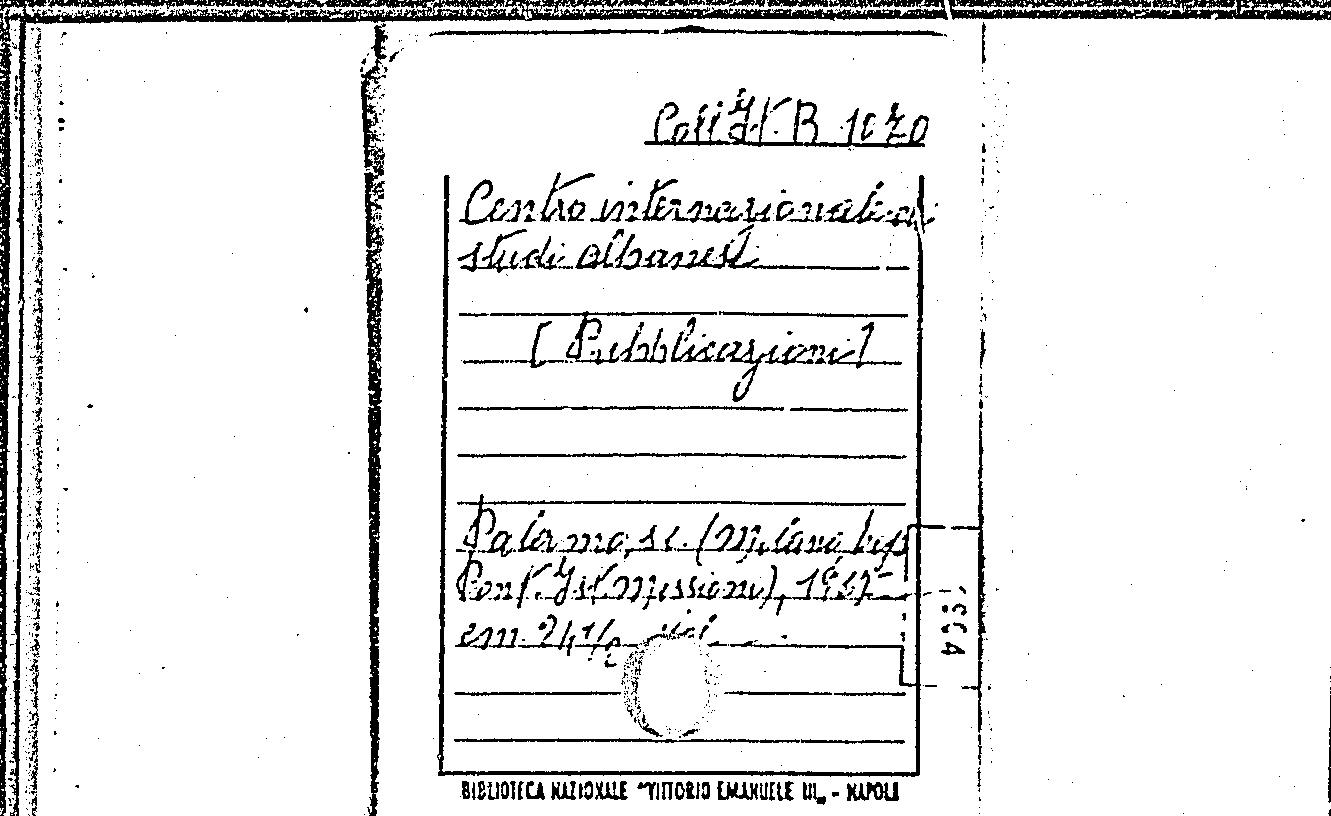 Coll. It. B 1070
Centro internazionale di
studi albanesi
[Pubblicazioni]
Palermo, s.e. (Milano, tip.
Pont. Ist. Missioni), 19
cm. 24 1/2
BIBLIOTECA NAZIONALE "VITTORIO EMANUELE III„ - NAPOLI